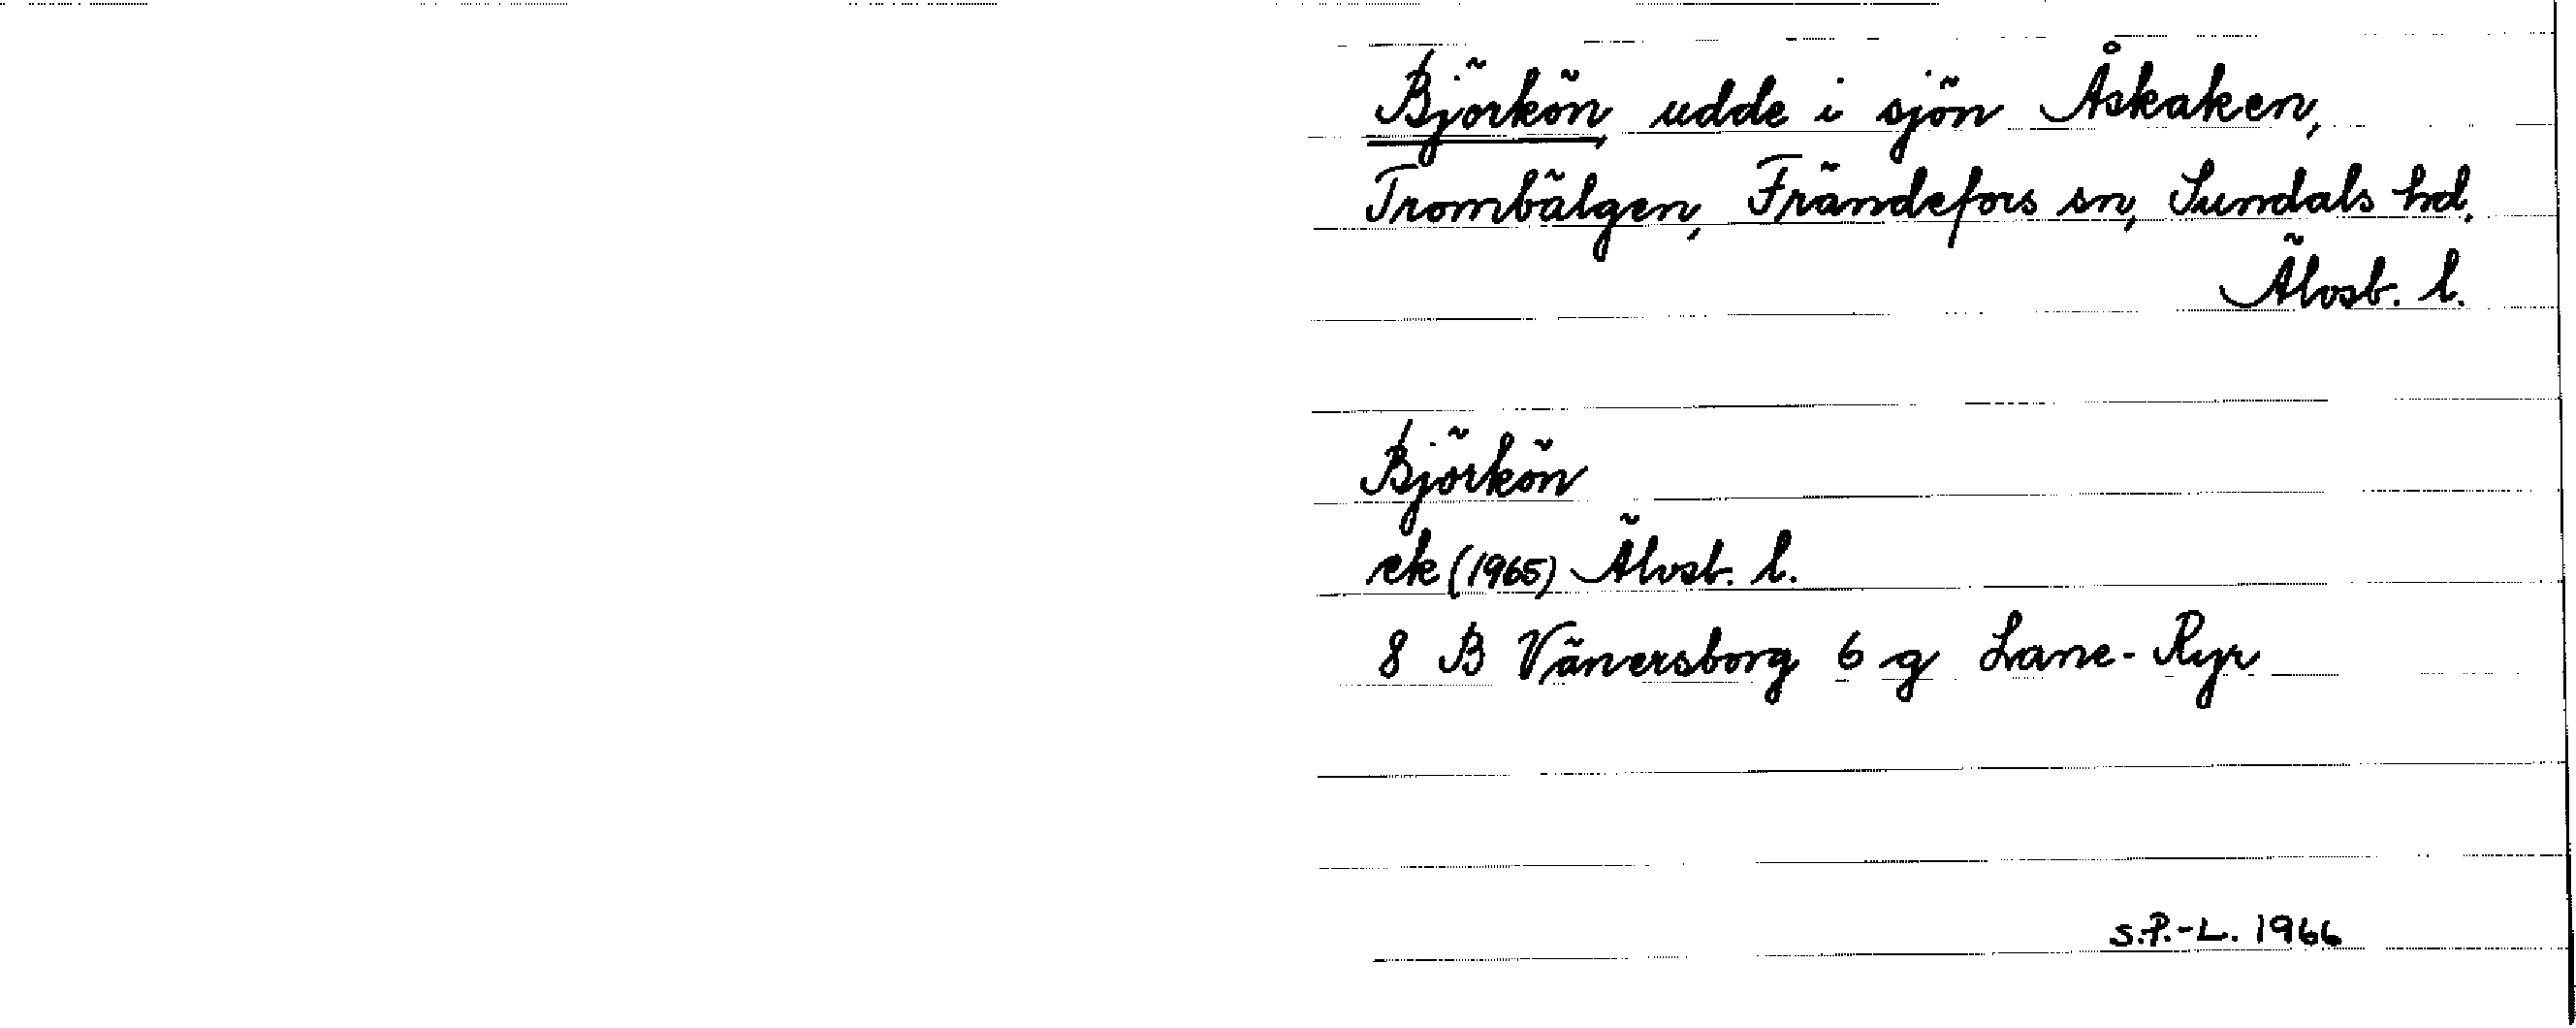 Björkön, udde i sjön Åskaken,
Trombälgen, Frändefors sn, Sundals hd,
Älvsb. l.
Björkön
ek (1965) Älvsb. l.
8 B Vänersborg 6 g Lane-Ryr
S.P.-L. 1966